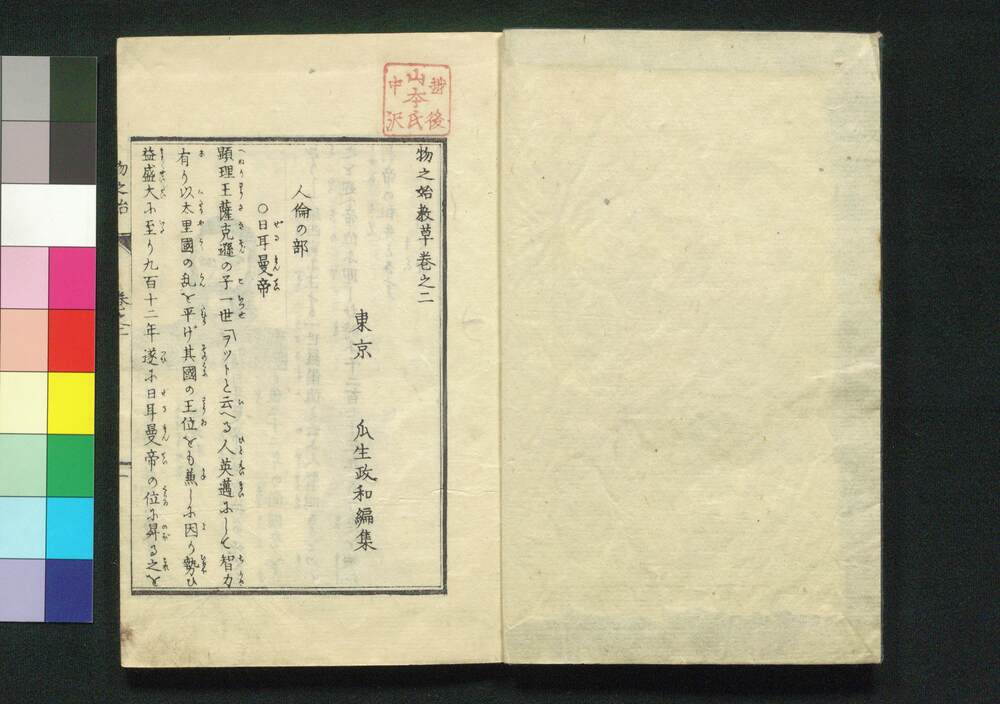 越後
山本氏
中沢
物之始教草巻之二
東京　瓜生政和編集
人倫の部
○日耳曼帝
顕理王薩克遜の子一世「ヲットと云へる人英邁にして智力
有り以太里國の乱を平げ其國の王位をも兼しに因り勢ひ
益盛大に至り九百十二年遂に日耳曼帝の位に昇る之を
物之始